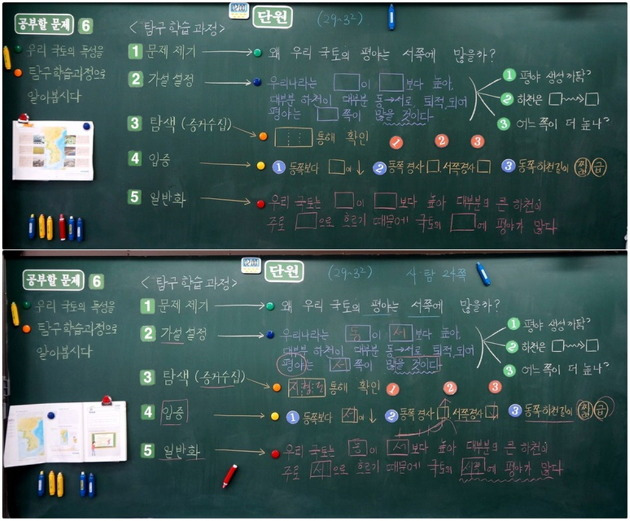 단원
(29-3²)
공부할 문제 6
우리 국토의 특성을
탐구학습과정으로
알아봅시다
<탐구 학습 과정>
1 문제 제기
왜 우리 국토의 평야는 서쪽에 많을까?
2 가설 설정
우리나라는 □이 □보다 높아,
대부분 하천이 대부분 동→서로 퇴적되어
평야는 □쪽이 많을 것이다
1 평야 생성 까닭?
2 하천은 □→□
3 어느쪽이 더 높나?
3 탐색 (증거수집)
□ 통해 확인 1 2 3
4 입증
1 동쪽보다 □이↓ 2 동쪽경사□ 서쪽경사□ 3 동쪽하천길이
5 일반화
우리 국토는 □이 □보다 높아 대부분의 큰 하천이
주로 □으로 흐르기 때문에 국토의 □에 평야가 많다
단원
(29-3²)
사탐 24쪽
공부할 문제 6
우리 국토의 특성을
탐구학습과정으로
알아봅시다
<탐구 학습 과정>
1 문제 제기
왜 우리 국토의 평야는 서쪽에 많을까?
2 가설 설정
우리나라는 동이 서보다 높아,
대부분 하천이 대부분 동→서로 퇴적되어
평야는 서쪽이 많을 것이다
1 평야 생성 까닭?
2 하천은 □→□
3 어느쪽이 더 높나?
3 탐색 (증거수집)
통해 확인 1 2 3
4 입증
1 동쪽보다 서이↓ 2 동쪽경사□ 서쪽경사□ 3 동쪽하천길이
5 일반화
우리 국토는 동이 서보다 높아 대부분의 큰 하천이
주로 서으로 흐르기 때문에 국토의 서쪽에 평야가 많다